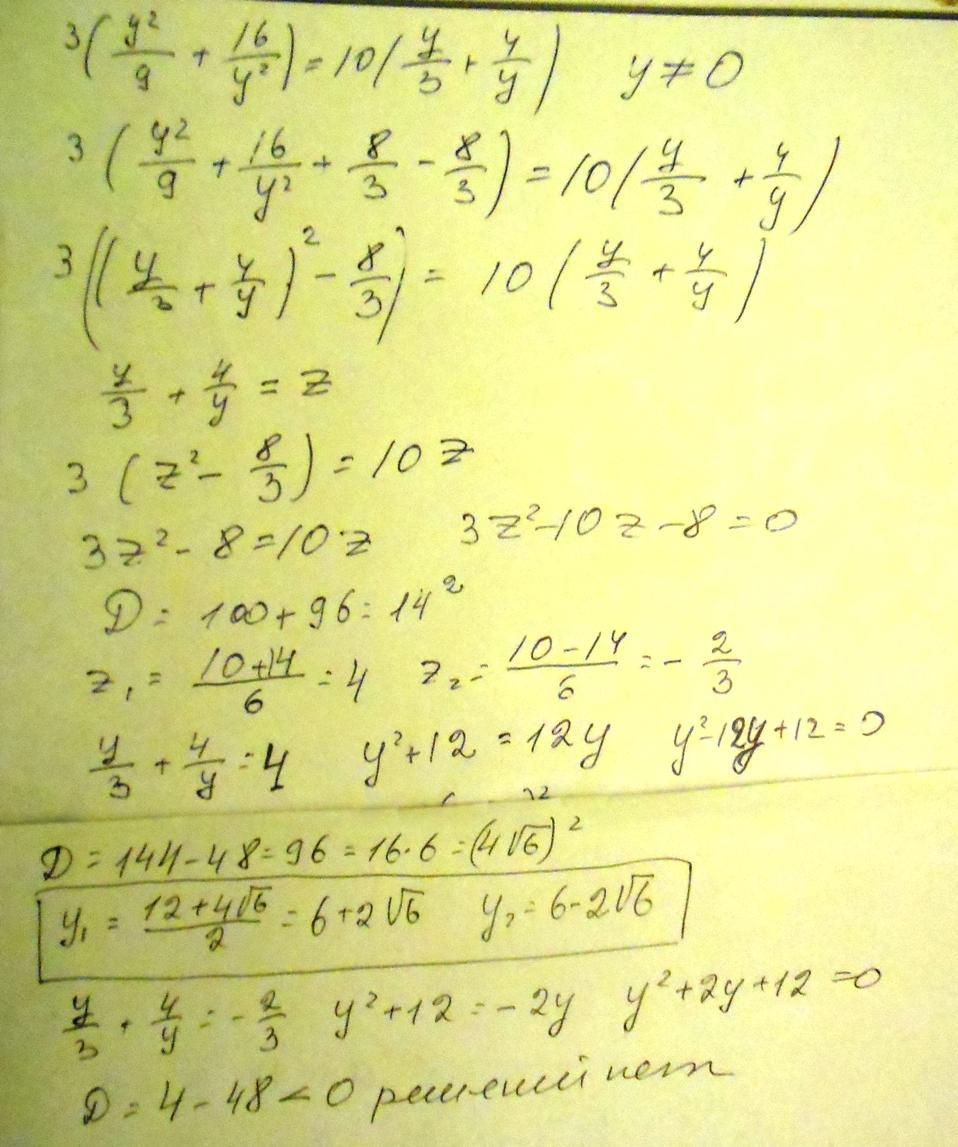 3(y²/9 + 16/y²) = 10(y/3 + 4/y) y ≠ 0
3(y²/9 + 16/y² + 8/3 - 8/3) = 10(y/3 + 4/y)
3((y/3 + 4/y)² - 8/3) = 10(y/3 + 4/y)
y/3 + 4/y = z
3(z² - 8/3) = 10z
3z² - 8 = 10z 3z² - 10z - 8 = 0
D = 100 + 96 = 14²
z₁ = (10+14)/6 = 4 z₂ = (10-14)/6 = -2/3
y/3 + 4/y = 4 y² + 12 = 12y y² - 12y + 12 = 0
D = 144 - 48 = 96 = 16·6 = (4√6)²
y₁ = (12+4√6)/2 = 6+2√6 y₂ = 6-2√6
y/3 + 4/y = -2/3 y² + 12 = -2y y² + 2y + 12 = 0
D = 4 - 48 < 0 решений нет